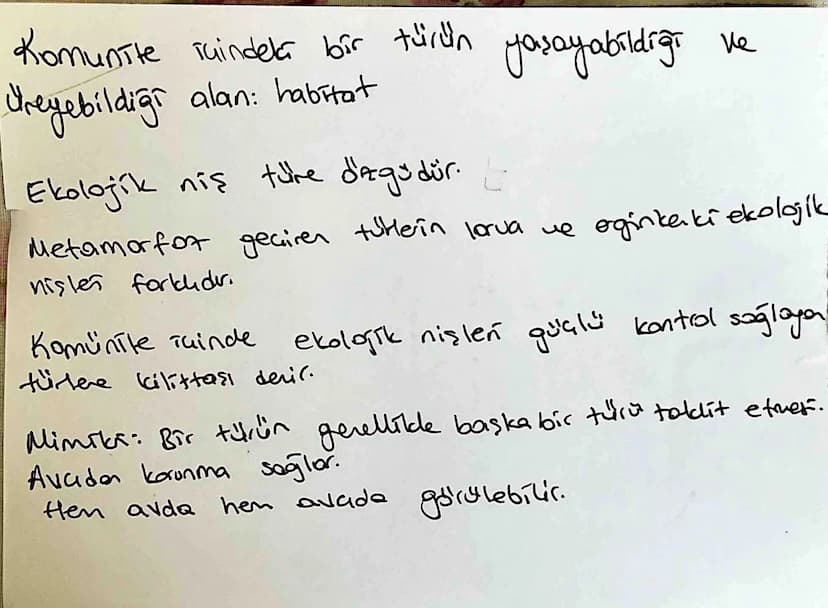 Komunite içindeki bir türün yaşayabildiği ve
Üreyebildiği alan: habitat
Ekolojik niş türe özgüdür.
Metamorfoz geçiren türlerin larva ve erginkenki ekolojik
nişleri farklıdır.
Komünite içinde ekolojik nişleri güçlü kontrol sağlayan
türlere kilittaşı denir.
Mimikri: Bir türün genellikle başka bir türü taklit etmesi.
Avcıdan korunma sağlar.
Hem avda hem avcıda görülebilir.